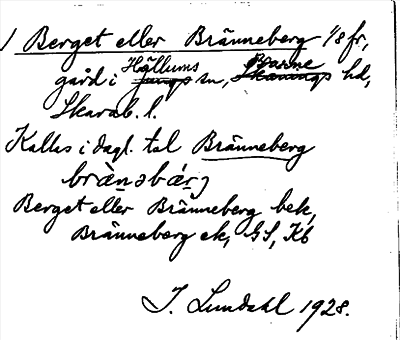 1 Berget eller Bränneberg 1/8 fr,
gård i Hällums sn, Barne hd,
Skarab. l.
Kallas i dagl. tal Bränneberg
brànəbǽrj
Berget eller Bränneberg bek,
Bränneberg ek, GS, Kb
J. Lundahl 1928.